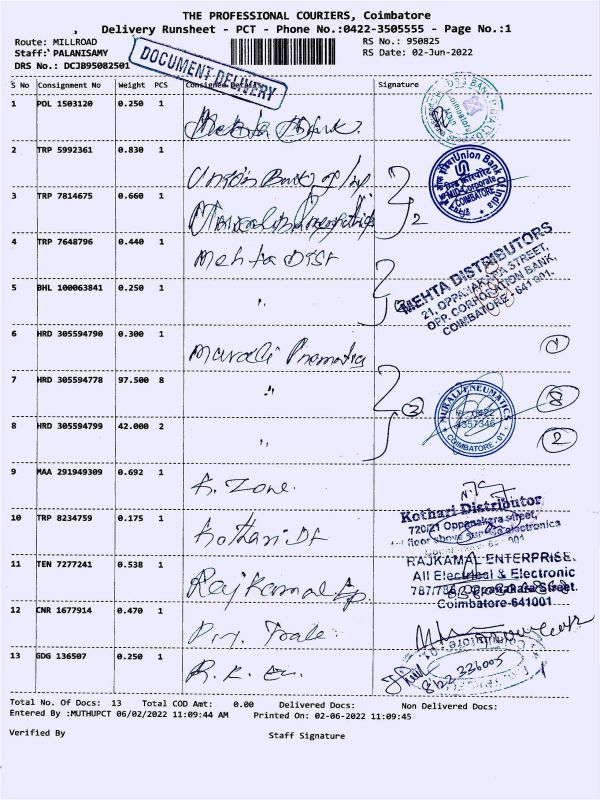 THE PROFESSIONAL COURIERS, Coimbatore
Delivery Runsheet - PCT - Phone No.:0422-3505555 - Page No.:1
Route: MILLROAD RS No.: 950825
Staff: PALANISAMY RS Date: 02-Jun-2022
DRS No.: DCJB95082501
DOCUMENT DELIVERY
S No Consignment No Weight PCS Consignee Details Signature
1 POL 1503120 0.250 1
2 TRP 5992361 0.830 1 Union Bank of
Union Bank Of India
MID Corporate
COIMBATORE
3 TRP 7814675 0.660 1
2
4 TRP 7648796 0.440 1 Mehta DIST
MEHTA DISTRIBUTORS
21, OPPANAKARA STREET,
OPP. CORPORATION BANK,
COIMBATORE - 641 001.
5 BHL 100063841 0.250 1 "
6 HRD 305594790 0.300 1 Murali
1
7 HRD 305594778 97.500 8 "
3
8
MURALI PNEUMATICS
0422
4357346
COIMBATORE - 01
8 HRD 305594799 42.000 2 "
2
9 MAA 291949309 0.692 1 A. Zone.
10 TRP 8234759 0.175 1 Kothari
Kothari Distributor
720/21 Oppanakara street,
floor above electronics
001
11 TEN 7277241 0.538 1 Rajkamal
RAJKAMAL ENTERPRISE.
All Electrical & Electronic
Oppanakara Street.
Coimbatore-641001
12 CNR 1677914 0.470 1
13 GDG 136507 0.250 1 R. K.
Total No. Of Docs: 13 Total COD Amt: 0.00 Delivered Docs: Non Delivered Docs:
Entered By :MUTHUPCT 06/02/2022 11:09:44 AM Printed On: 02-06-2022 11:09:45
Verified By Staff Signature